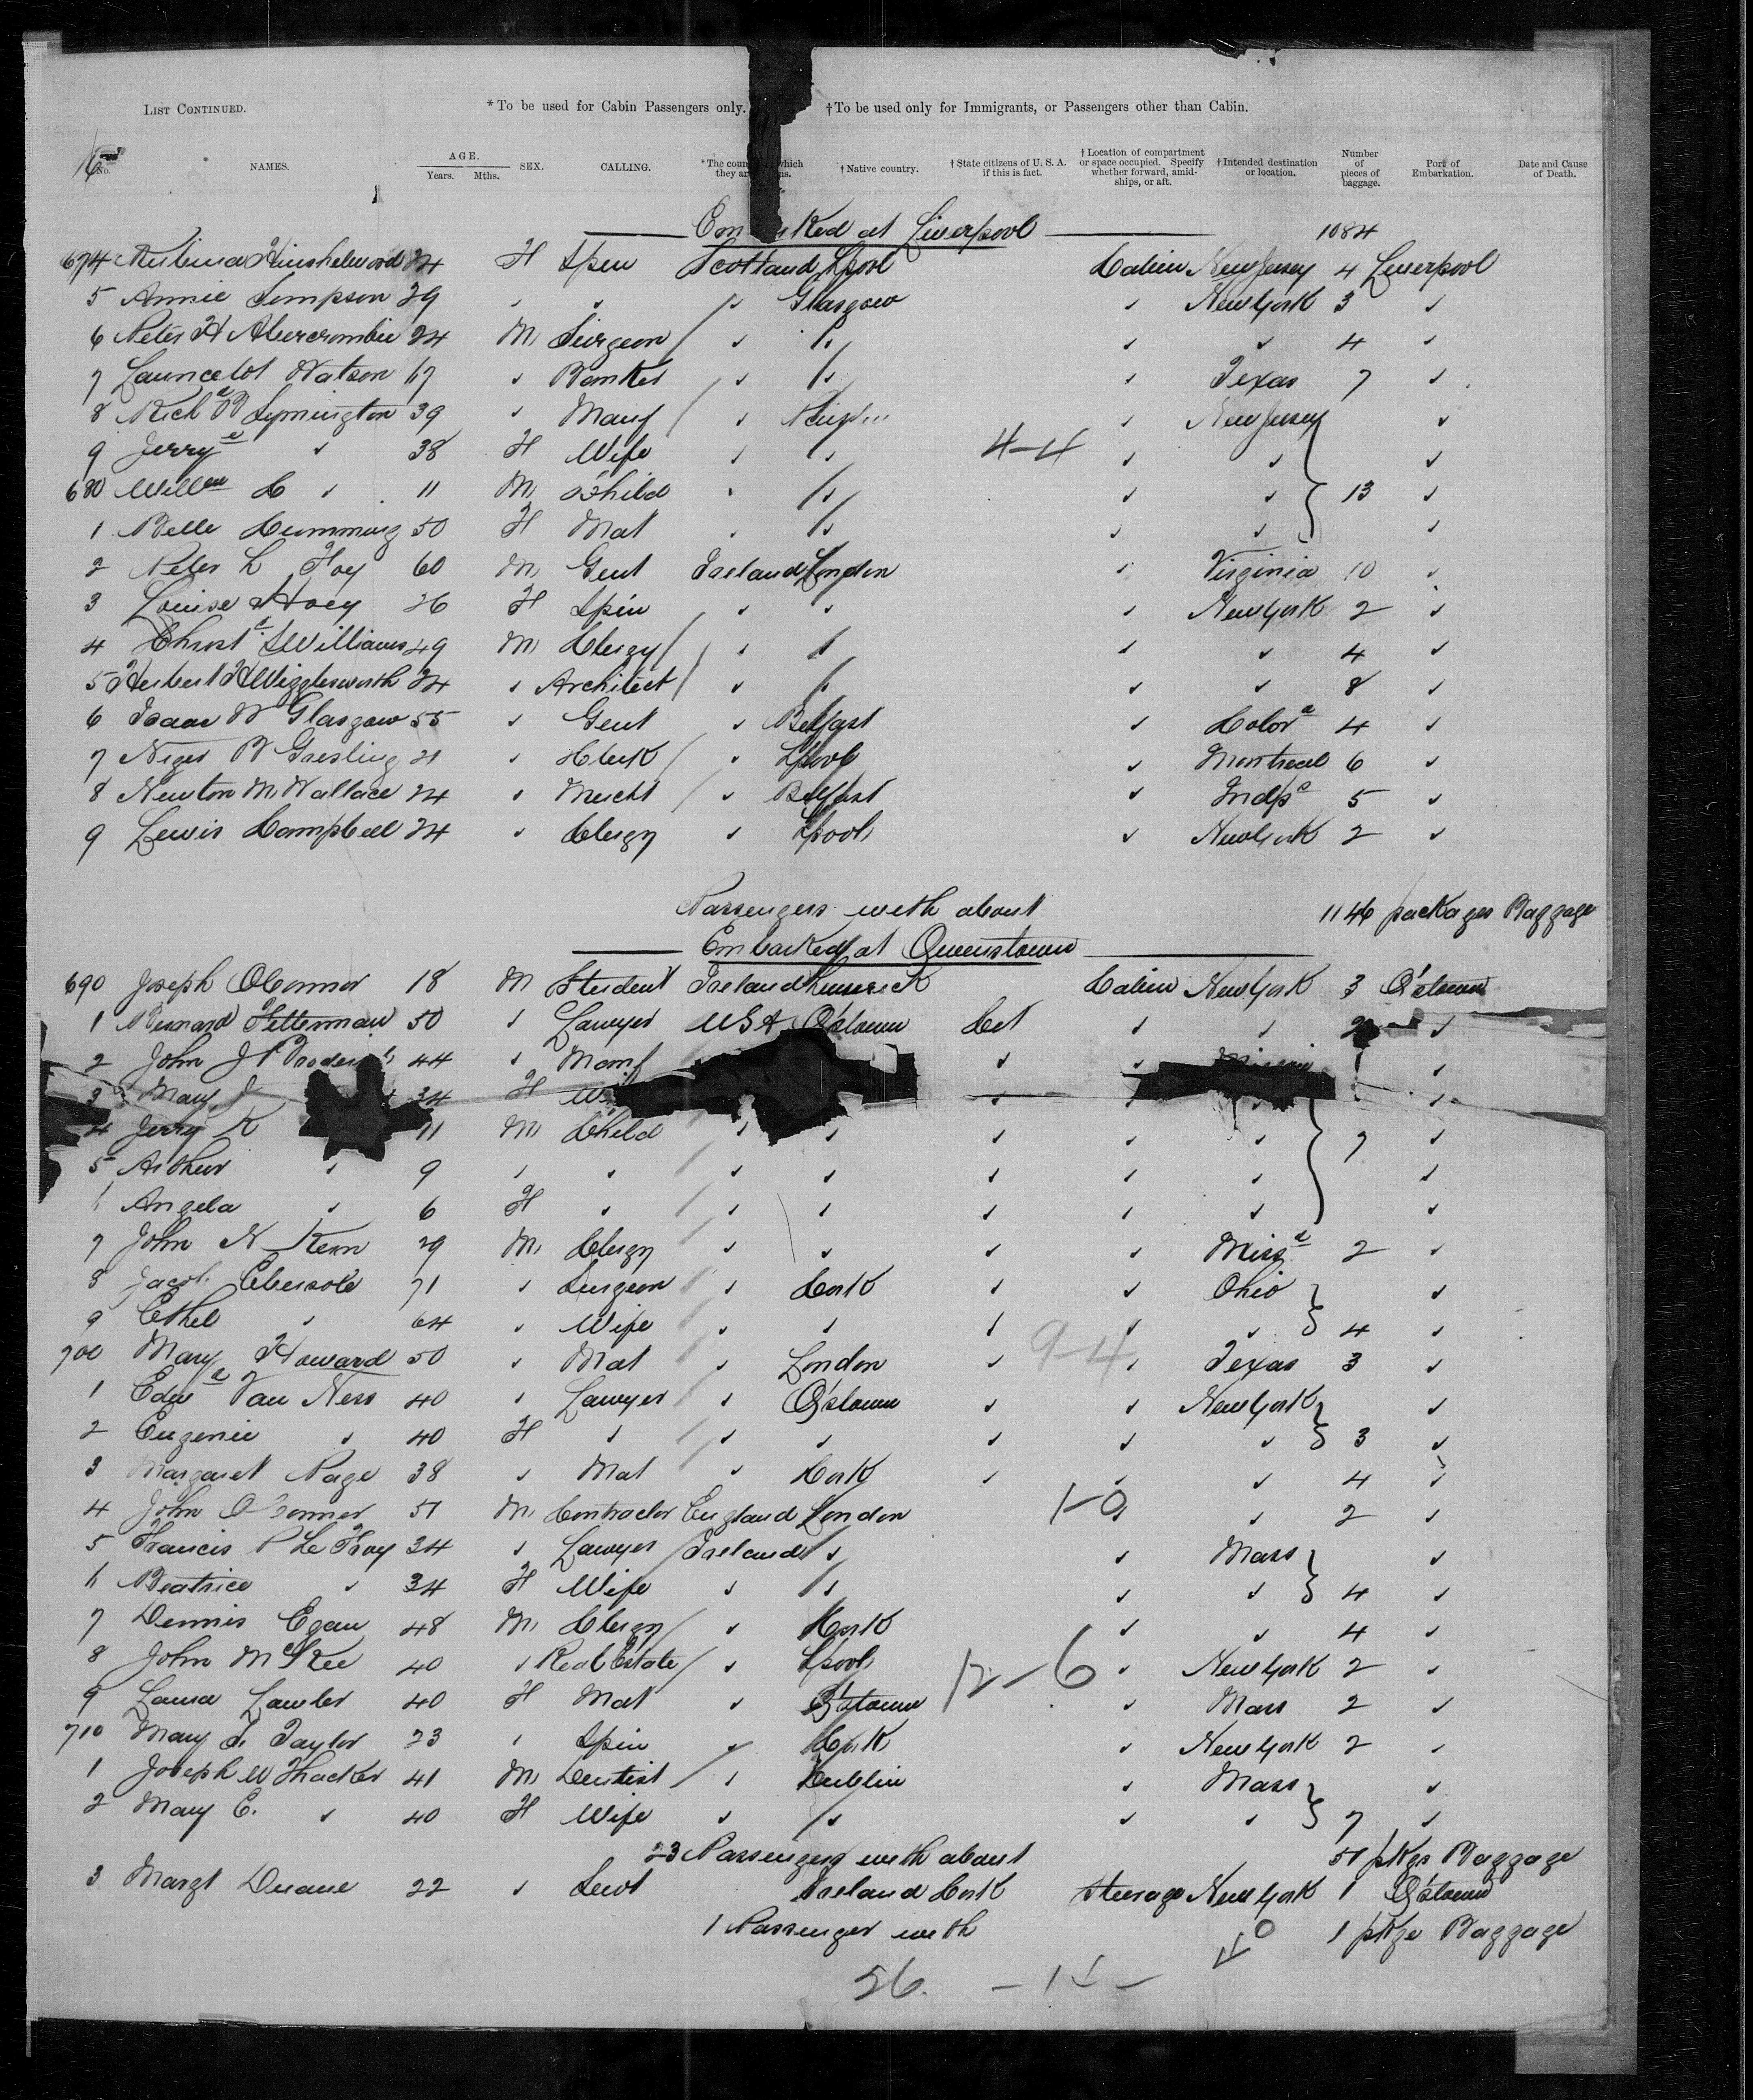 LIST CONTINUED. *To be used for Cabin Passengers only. †To be used only for Immigrants, or Passengers other than Cabin.
No. NAMES. AGE. Years. Mths. SEX. CALLING. *The coun which they ar ns. †Native country. †State citizens of U. S. A. if this is fact. †Location of compartment or space occupied. Specify whether forward, amidships, or aft. †Intended destination or location. Number of pieces of baggage. Port of Embarkation. Date and Cause of Death.
Em ked at Liverpool 1084
674 Hinshelwood 24 F Spin Scotland L'pool Cabin New Jersey 4 Liverpool
5 Annie Simpson 29 " " " Glasgow " New York 3 "
6 Peter H Abercrombie 24 M Surgeon " " " " 4 "
7 Launcelot Watson 67 " Banker " " " Texas 7 "
8 Richd B Symington 39 " Manf " " New Jersey "
9 Jerrye " 38 F Wife " " 4-4 " " "
680 Willm C " 11 M Child " " " " 13 "
1 Belle Cumming 50 F Mat " " " " "
2 Peter L Foy 60 M Gent Ireland London " Virginia 10 "
3 Louise Hoey 26 F Spin " " " New York 2 "
4 Williams 49 M Clergy " " " " 4 "
5 Herbert H Wigglesworth 24 " Architect " " " " 8 "
6 Isaac W Glasgow 55 " Gent " Belfast " Colora 4 "
7 B Gresling 21 " Clerk " L'pool " Montreal 6 "
8 Newton M Wallace 24 " Mercht " Belfast " 5 "
9 Lewis Campbell 24 " Clergy " L'pool " New York 2 "
Passengers with about 1146 packages Baggage
Embarked at Queenstown
690 Joseph O'Connor 18 M Student Ireland Limerick Cabin New York 3 Q'stown
1 Bernard Fetterman 50 " Lawyer USA Q'stown Cet " " 2 "
2 John J 44 " Manf " " "
3 Mary J 34 F " " " "
4 Jerry K 11 M Child " " " " " 7 "
5 Arthur " 9 " " " " " " " "
6 Angela " 6 F " " " " " " "
7 John N Kern 29 M Clergy " " " " 2 "
8 Jacob Ebersole 71 " Surgeon " Cork " " Ohio "
9 Ethel " 64 " Wife " " " " " 4 "
700 Mary Howard 50 " Mat " London " 9-4 " Texas 3 "
1 Edwd Van Ness 40 " Lawyer " Q'stown " " New York "
2 Eugenie " 40 F " " " " " " 3 "
3 Margaret Page 38 " Mat " Cork " " " 4 "
4 John O'Connor 51 M Contractor England London 1-0 " " 2 "
5 Francis P Le Froy 34 " Lawyer Ireland " " Mass "
6 Beatrice " 34 F Wife " " " " 4 "
7 Dennis Egan 48 M Clergy " Cork " " 4 "
8 John McKee 40 " Real Estate " L'pool 12-6 " New York 2 "
9 Laura Lawler 40 F Mat " Q'stown " Mass 2 "
710 Mary Taylor 23 " Spin " Cork " New York 2 "
1 Joseph W Thacker 41 M Dentist " Dublin " Mass "
2 Mary E. " 40 F Wife " " " " 7 "
23 Passengers with about 51 pkgs Baggage
3 Margt Duane 22 " Servt Ireland Cork Steerage New York 1 Q'stown
1 Passenger with 1 pkge Baggage
26.